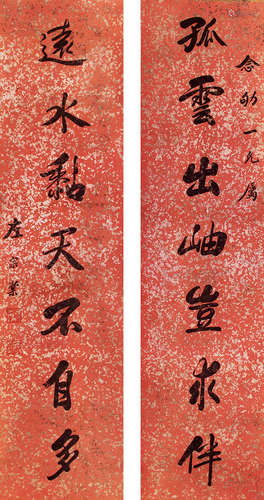 孤雲出岫豈求伴
念劬一兄屬
遠水黏天不自多
左宗棠